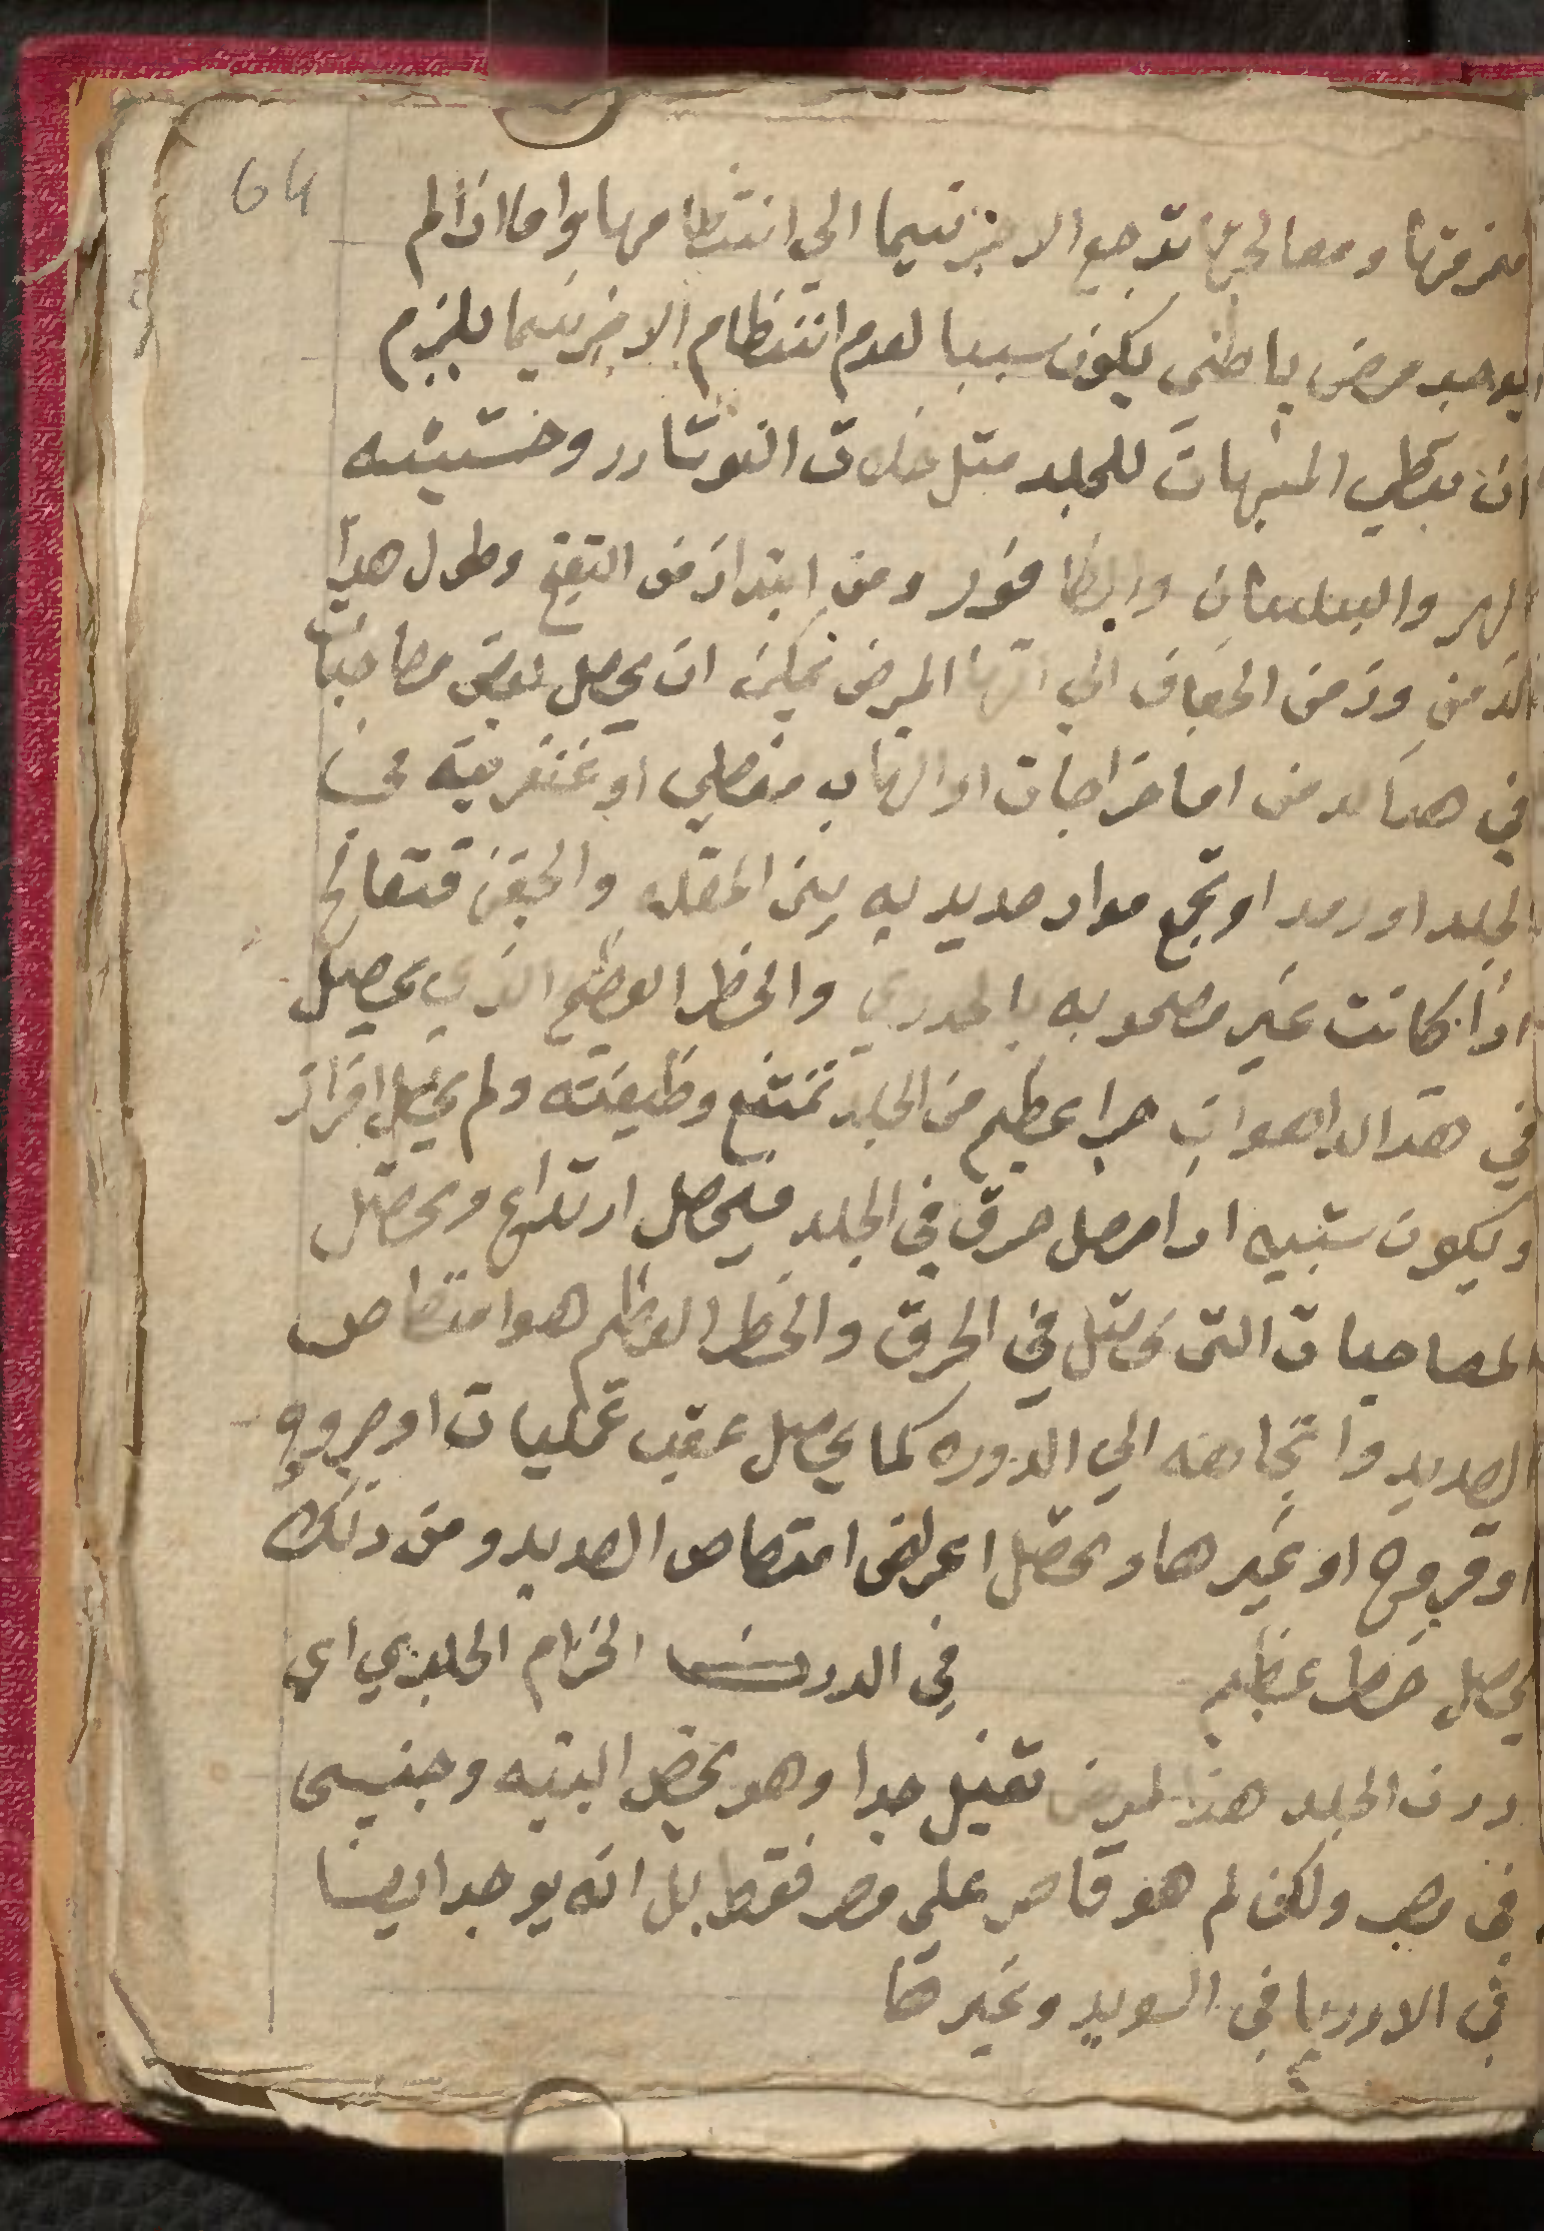 64
معرفتها ومعالجتها ترجع الاخزنتيما الي انتظامها واما اذا لم
يوجد مرض باطني يكون سببا لعدم انتظام الاخزنتيما يلزم
ان يعطي المنبهات للجلد مثل خلات النوشادر وحشيشه
الهر والبيلسان وايضا فور ومن ابتدا زمن التقيح وطول هدا
الزمن وزمن الجفاف الي انتها المرض يمكن ان يحصل بعض مصاحبات
في هدا من اما خراجات او التهاب مفصلي او غنغرينه في
الجلد او رمد او تجمع مواد صديديه بين المقله والجفن فتعالج
ادا كانت غير مصحوبه بالجدري والخطر العظيم الذي يحصل
في هذا الدا هو ان جزا عظيم من الجلد تمتنع وظيفته ولم يحصل افراز
ويكون شبيه ادا حصل حرق في الجلد فيحصل ارتداع ويحصل
المصاحبات التي تحصل في الحرق والخطر العظيم هو امتصاص
الصديد واتجاهه الي الدوره كما يحصل عقب عمليات او جروح
او قروح او غيرها ويحصل اعراض امتصاص الصديد ومن ذلك
يحصل خطر عظيم في الدرن الخزام الجلدي اي
درن الجلد هذا المرض ثقيل جدا وهو يخص البنيه وجنسي
في مصر ولكن لم هو قاصر علي مصر فقط بل انه يوجد ايضا
في الاوروبا في السويد وغيرها